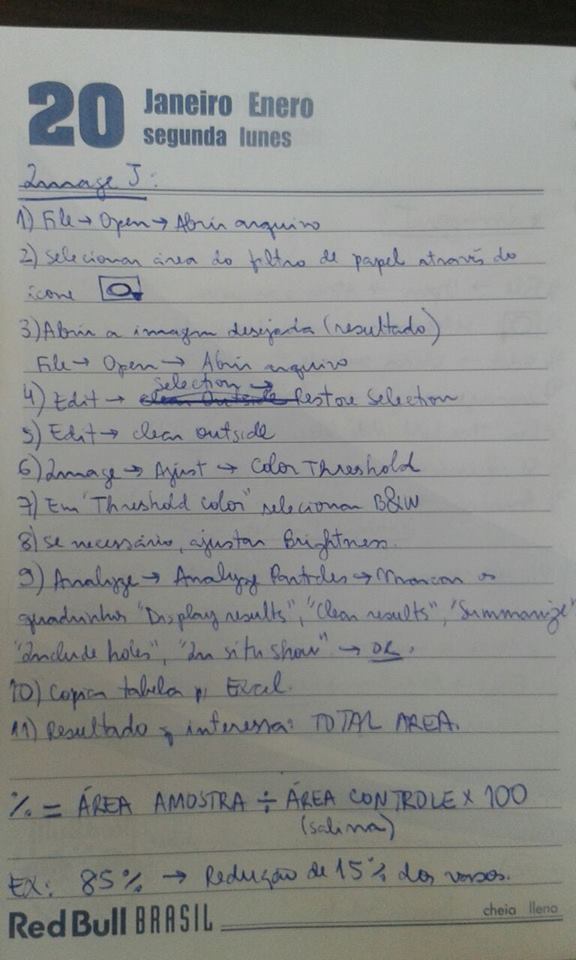 20 Janeiro Enero
segunda lunes
Image J:
1) File → Open → Abrir arquivo
2) Selecionar área do filtro de papel através do
ícone
3) Abrir a imagem desejada (resultado)
File → Open → Abrir arquivo
Selection →
4) Edit → Clean Outside Restore Selection
5) Edit → clean outside
6) Image → Ajust → Color Threshold
7) Em "Threshold color" selecionar B&W
8) Se necessário, ajustar Brightness.
9) Analyze → Analyze Particles → Marcar os
quadrinhos "Display results", "Clean results", "Summarize"
"Include holes", "In situ show" → OK.
10) Copiar tabela p/ Excel.
11) Resultado q interessa: TOTAL AREA.
% = ÁREA AMOSTRA ÷ ÁREA CONTROLE x 100
(salina)
EX: 85% → Redução de 15% dos vasos.
Red Bull BRASIL
cheia llena